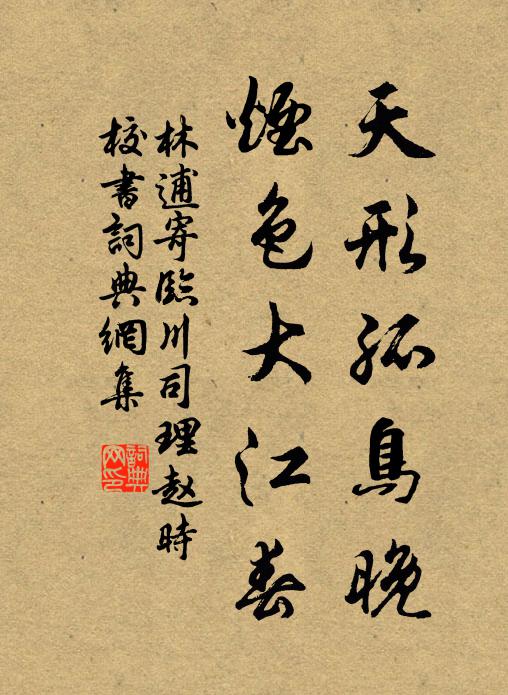 天形孤鳥晚
煙色大江春
林逋寄臨川司理趙時
校書詞典網集
詞典网印